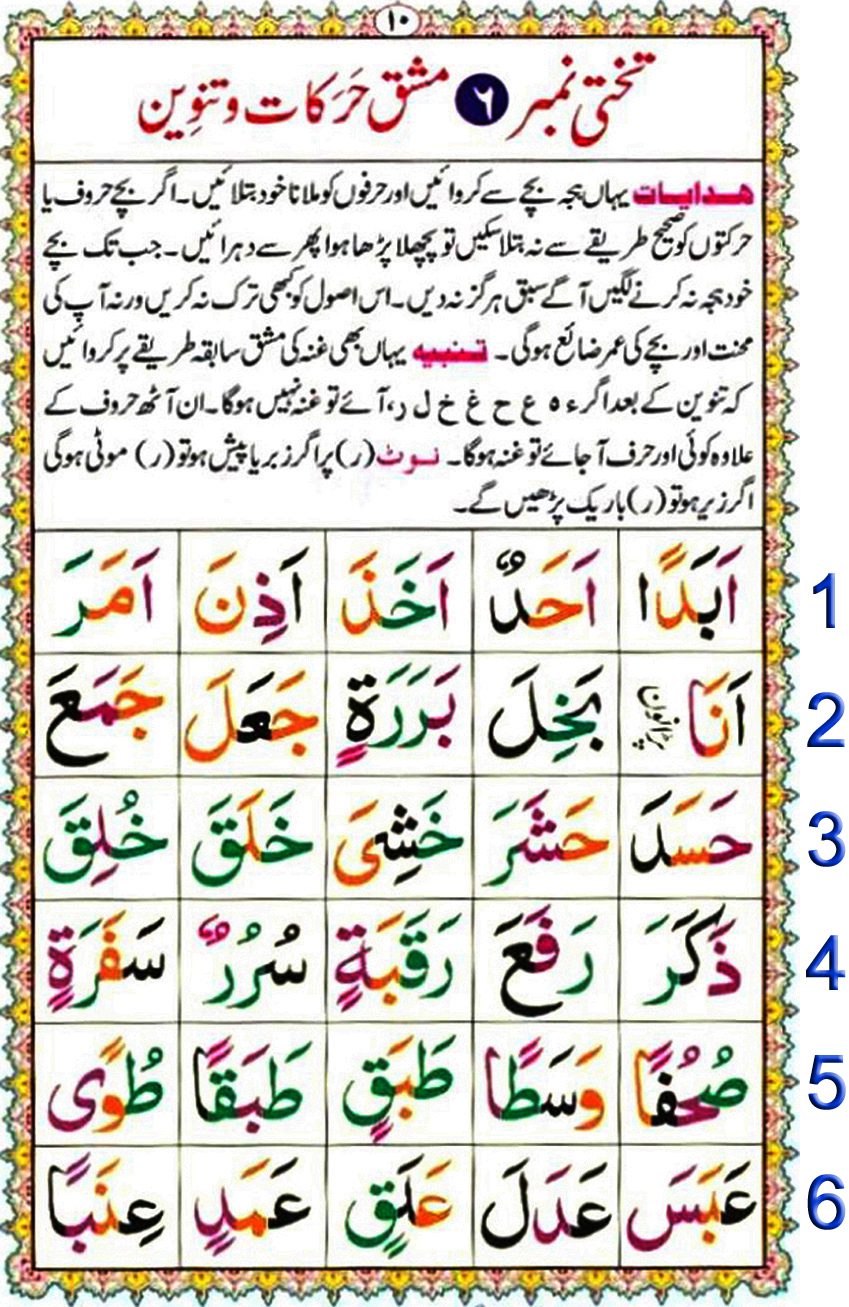 ١٠
تختی نمبر ٦ مشق حَرَکات و تنوِین
هدایات یہاں ہجہ بچے سے کروائیں اور حرفوں کو ملانا خود بتلائیں۔ اگر بچے حروف یا
حرکتوں کو صحیح طریقے سے نہ بتلا سکیں تو پچھلا پڑھا ہوا پھر سے دہرائیں۔ جب تک بچے
خود ہجہ نہ کرنے لگیں آگے سبق ہرگز نہ دیں۔ اس اصول کو کبھی ترک نہ کریں ورنہ آپ کی
محنت اور بچے کی عمر ضائع ہوگی۔ تنبیه یہاں بھی غنہ کی مشق سابقہ طریقے پر کروائیں
کہ تنوین کے بعد اگر ء ہ ع ح غ خ ل ر، آئے تو غنہ نہیں ہوگا۔ ان آٹھ حروف کے
علاوہ کوئی اور حرف آجائے تو غنہ ہوگا۔ نوٹ (ر) پر اگر زبر یا پیش ہو تو (ر) موٹی ہوگی
اگر زیر ہو تو (ر) باریک پڑھیں گے۔
اَبَدًا اَحَدٌ اَخَذَ اَذِنَ اَمَرَ 1
اَنَا بَخِلَ بَرَرَةٍ جَعَلَ جَمَعَ 2
حَسَدَ حَشَرَ خَشِیَ خَلَقَ خُلِقَ 3
ذَكَرَ رَفَعَ رَقَبَةٍ سُرُرٌ سَفَرَةٍ 4
صُحُفًا وَسَطًا طَبَقٍ طَبَقًا طُوًی 5
عَبَسَ عَدَلَ عَلَقٍ عَمَدٍ عِنَبًا 6